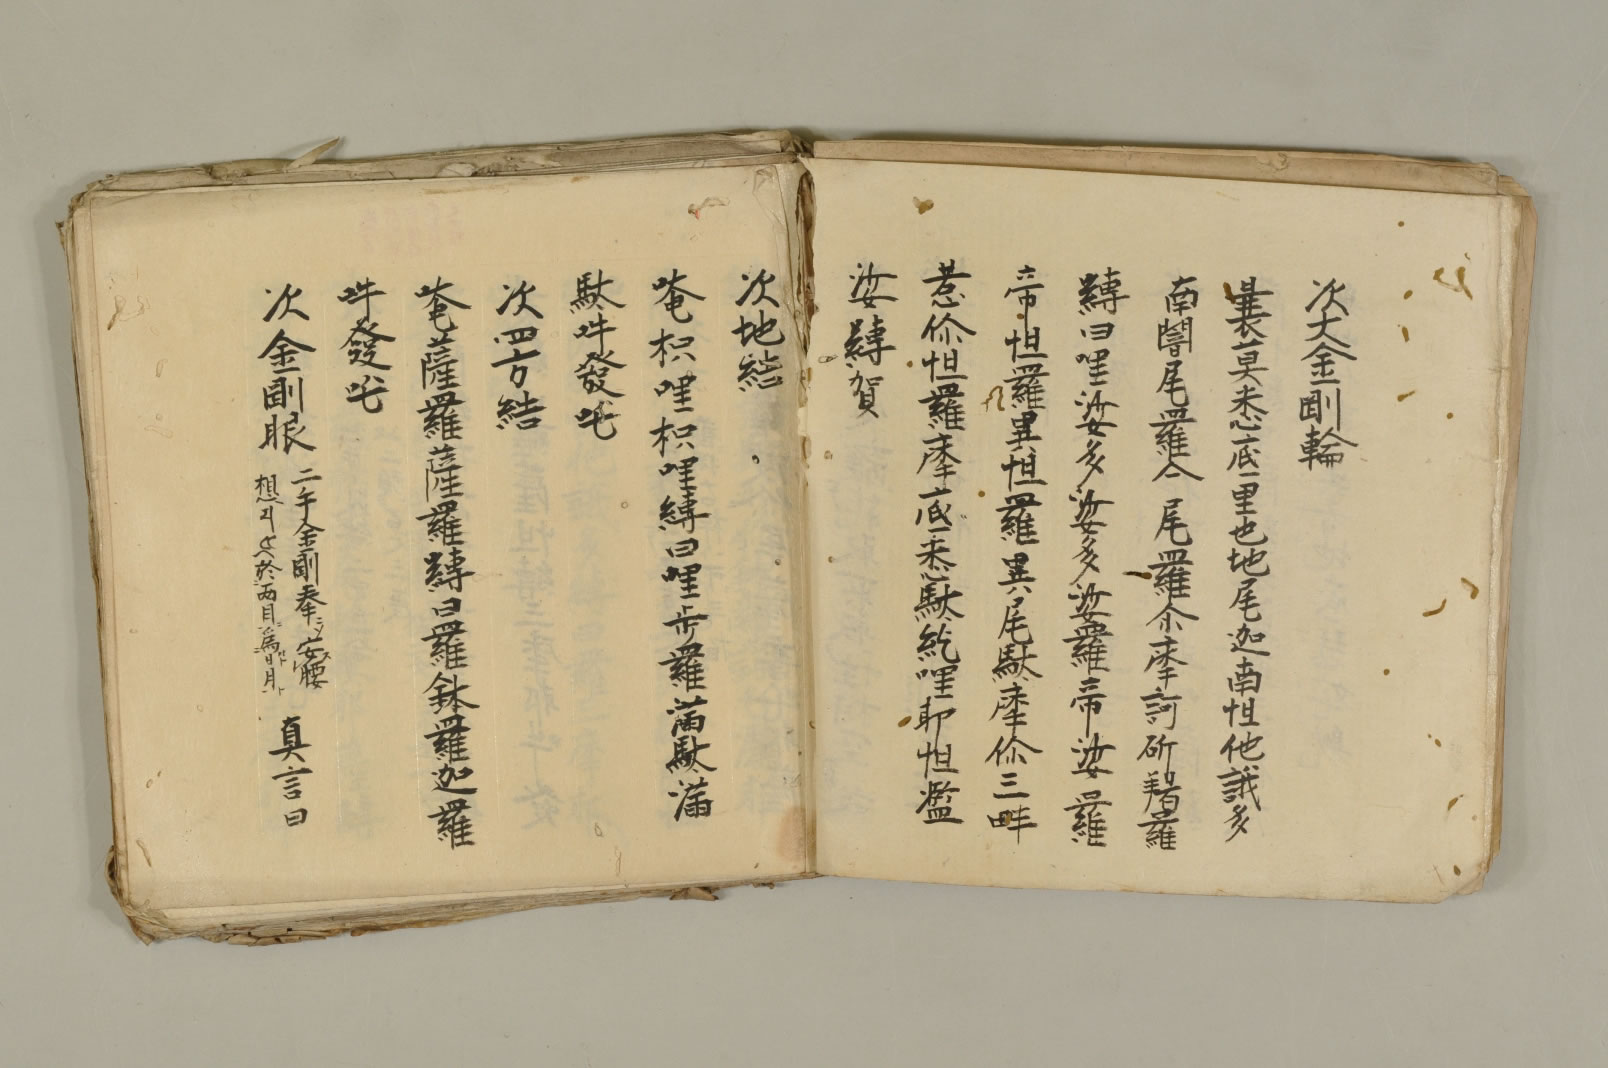 次大金剛輪
曩莫悉底里也地尾迦南怛他誐多
南闇尾羅介尾羅介摩訶斫羯羅
縛曰哩娑多娑多娑羅帝娑羅
帝怛羅異怛羅異尾馱麼你三畔
惹你怛羅摩底悉馱紇哩耶怛濫
娑縛賀
次地結
唵枳哩枳哩縛曰哩步羅滿馱滿
馱吽發吒
次四方結
唵薩羅薩羅縛曰羅鉢羅迦羅
吽發吒
次金剛眼 二手金剛拳シ安腰ス 真言曰
於両目為日月